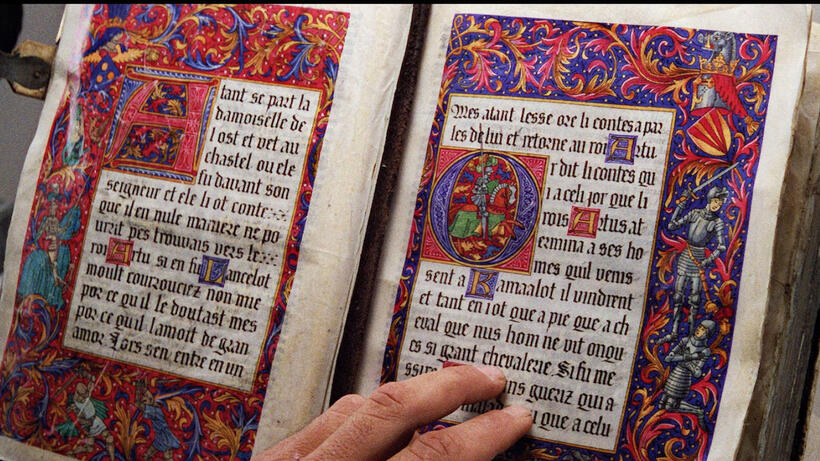 Atant se part la
damoiselle de
l ost et vet au
chastel ou ele
fu davant son
seigneur et ele li ot conte
que il en nule maniere ne po
urait pes trouvais vers le
roi Artu si en fu Lancelot
moult courouciez non mie
por ce qu il le doutast mes
por ce qu il lamoit de gran
amor. sen entre en un
Mes atant lesse ore li contes a par
ler de lui et retorne au roi Artu
Or dit li contes qu
i a celi jor que li
rois Artus at
ermina a ses ho
mes quil venis
sent a Kamaalot il vindrent
et tant en i ot que a pie que a ch
eval que nus hom ne vit onqu
es si grant chevalerie. Si fu me
ssire ins gueriz qui a
u que a celu